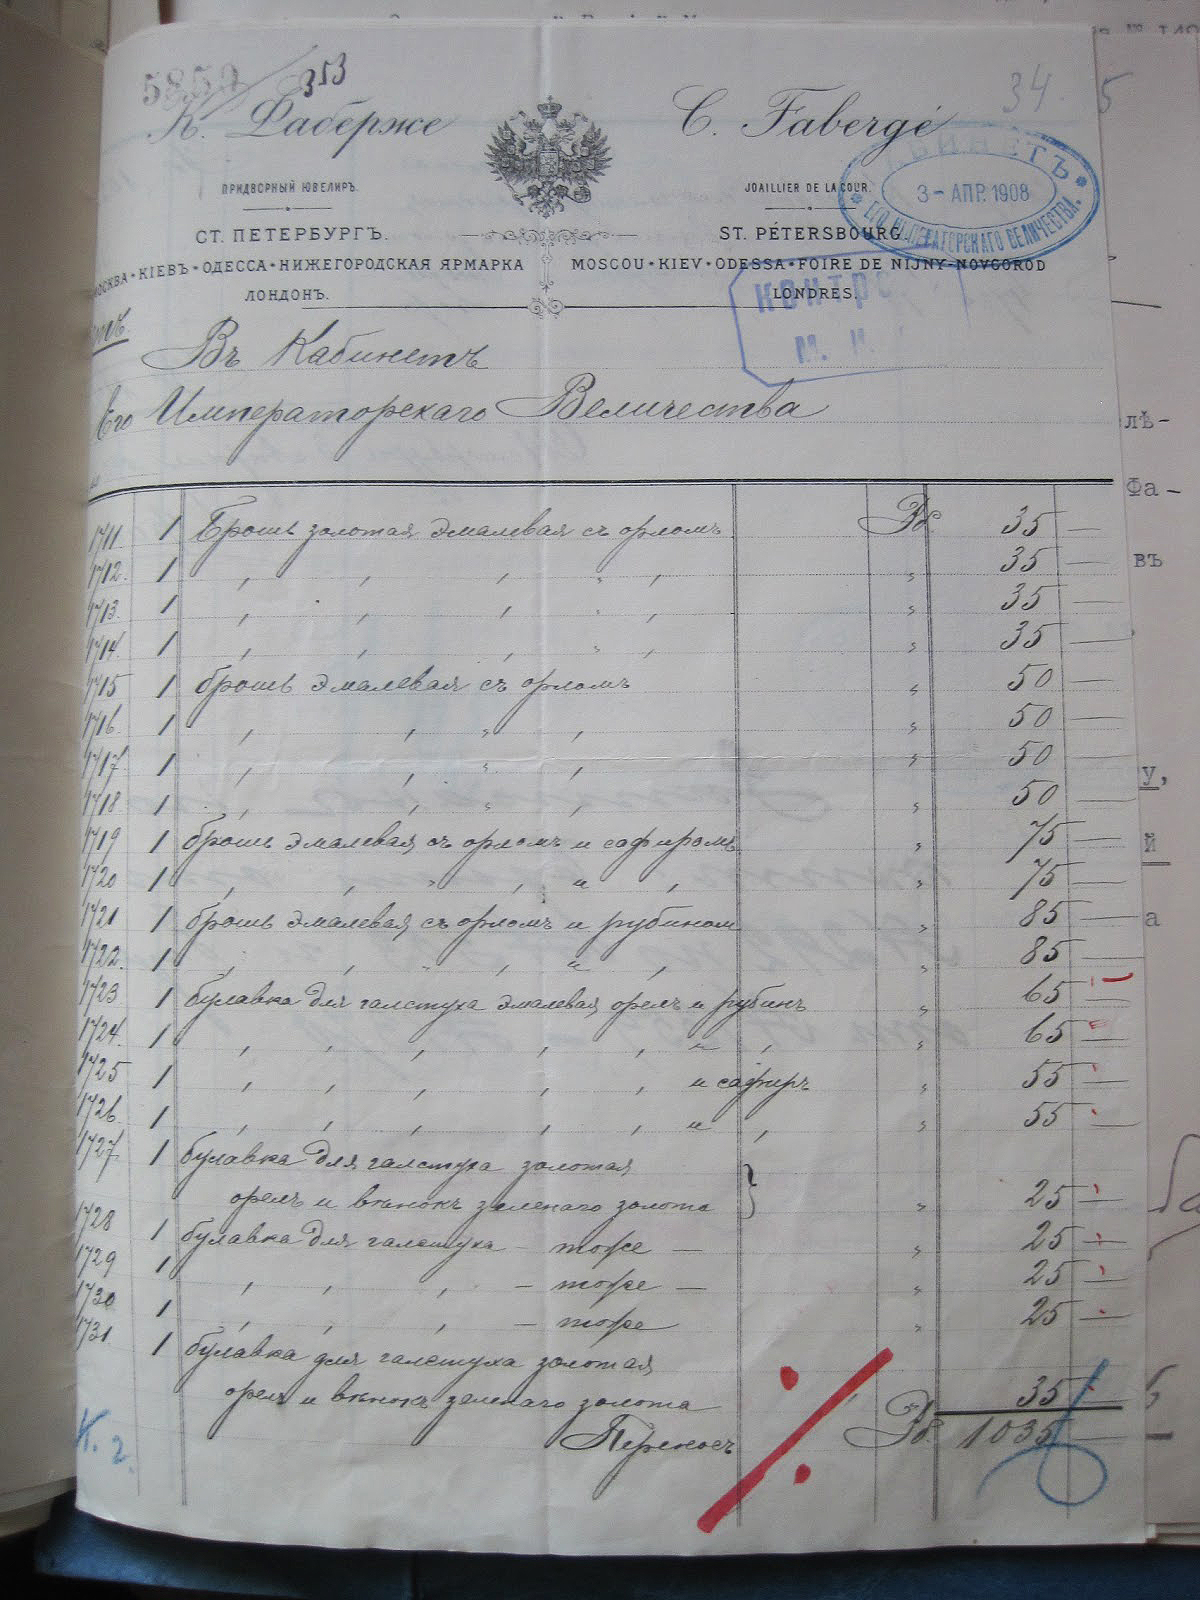 5859 353
34. 5
К. Фаберже C. Fabergé
ПРИДВОРНЫЙ ЮВЕЛИРЪ. JOAILLIER DE LA COUR.
КАБИНЕТЪ
3 - АПР. 1908
ЕГО ИМПЕРАТОРСКАГО ВЕЛИЧЕСТВА.
СТ. ПЕТЕРБУРГЪ. ST. PÉTERSBOURG.
МОСКВА • КІЕВЪ • ОДЕССА • НИЖЕГОРОДСКАЯ ЯРМАРКА MOSCOU • KIEV • ODESSA • FOIRE DE NIJNY-NOVGOROD
ЛОНДОНЪ. LONDRES.
КОНТР
М. И.
Въ Кабинетъ
Его Императорскаго Величества
1711 1 Брошь золотая эмалевая съ орломъ Рб. 35 —
1712. 1 " " " " " " 35 —
1713. 1 " " " " " " 35 —
1714. 1 " " " " " " 35 —
1715 1 брошь эмалевая съ орломъ " 50 —
1716. 1 " " " " " 50 —
1717 1 " " " " " 50 —
1718 1 " " " " " 50 —
1719 1 брошь эмалевая съ орломъ и сафиромъ " 75 —
1720 1 " " " " " " " 75 —
1721 1 брошь эмалевая съ орломъ и рубином " 85 —
1722. 1 " " " " " " " 85 —
1723 1 булавка для галстуха эмалевая орелъ и рубинъ " 65 —
1724. 1 " " " " " " " " 65 —
1725 1 " " " " " и сафиръ " 55 —
1726. 1 " " " " " " " " 55 —
1727 1 булавка для галстуха золотая
орелъ и вѣнокъ зеленаго золота } " 25 —
1728 1 булавка для галстуха — тоже — " 25 —
1729 1 " " " — тоже — " 25 —
1730 1 " " " — тоже " 25 —
1731 1 булавка для галстуха золотая
орелъ и вѣнокъ зеленаго золота 35
Переносъ Рб. 1035
К. 2.
лѣ-
Фа-
въ
у,
й
а